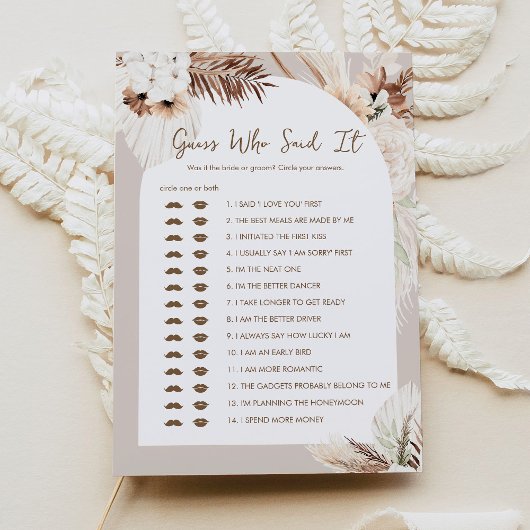 Guess Who Said It
Was it the bride or groom? Circle your answers.
circle one or both
1. I SAID 'I LOVE YOU' FIRST
2. THE BEST MEALS ARE MADE BY ME
3. I INITIATED THE FIRST KISS
4. I USUALLY SAY 'I AM SORRY' FIRST
5. I'M THE NEAT ONE
6. I'M THE BETTER DANCER
7. I TAKE LONGER TO GET READY
8. I AM THE BETTER DRIVER
9. I ALWAYS SAY HOW LUCKY I AM
10. I AM AN EARLY BIRD
11. I AM MORE ROMANTIC
12. THE GADGETS PROBABLY BELONG TO ME
13. I'M PLANNING THE HONEYMOON
14. I SPEND MORE MONEY